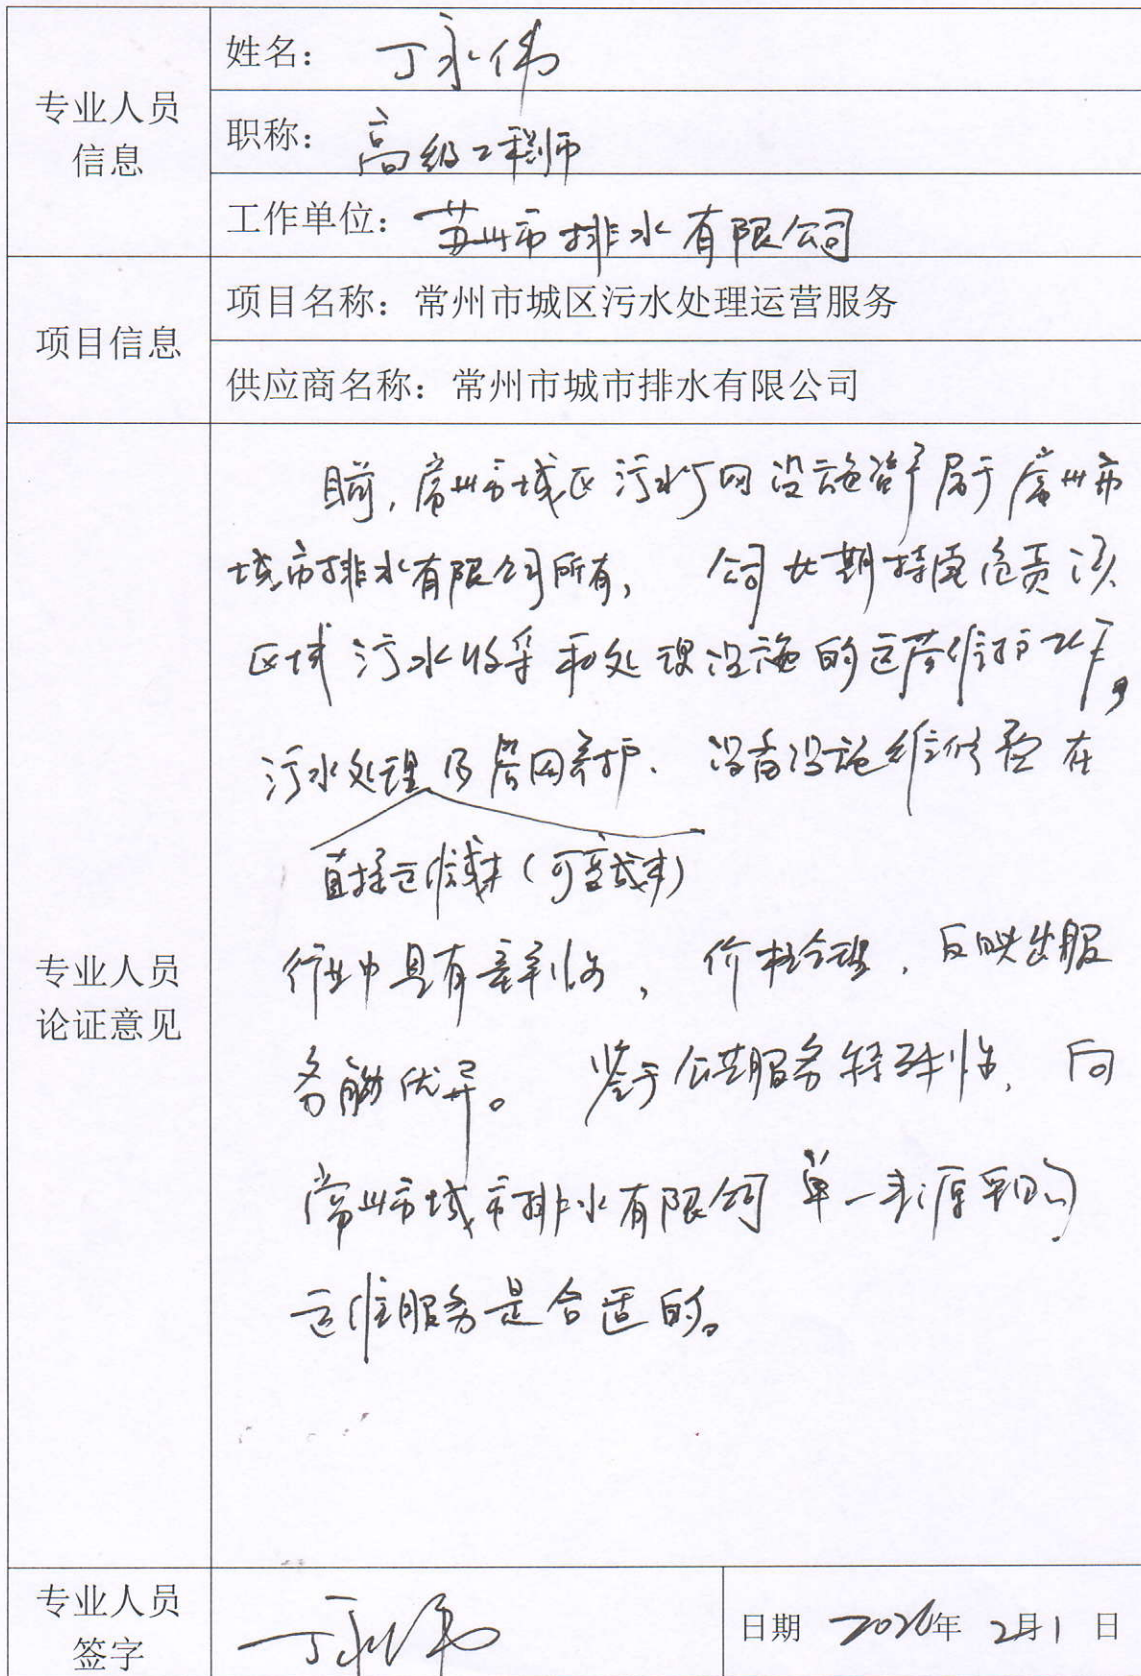 专业人员
信息
姓名： 丁永伟
职称： 高级工程师
工作单位： 苏州市排水有限公司
项目信息
项目名称：常州市城区污水处理运营服务
供应商名称：常州市城市排水有限公司
专业人员
论证意见
目前，常州市城区污水厂网设施资产属于常州市
城市排水有限公司所有， 公司长期持续负责该
区域污水收集和处理设施的运营维护工作。
污水处理及管网养护、设备设施维修 在
直接运维成本（可变成本）
行业中具有 ， 价格合理，反映出服
务能力优异。 鉴于公共服务特殊性，向
常州市城市排水有限公司单一来源采购
运维服务是合适的。
专业人员
签字
丁永伟
日期 2026年 2月1日